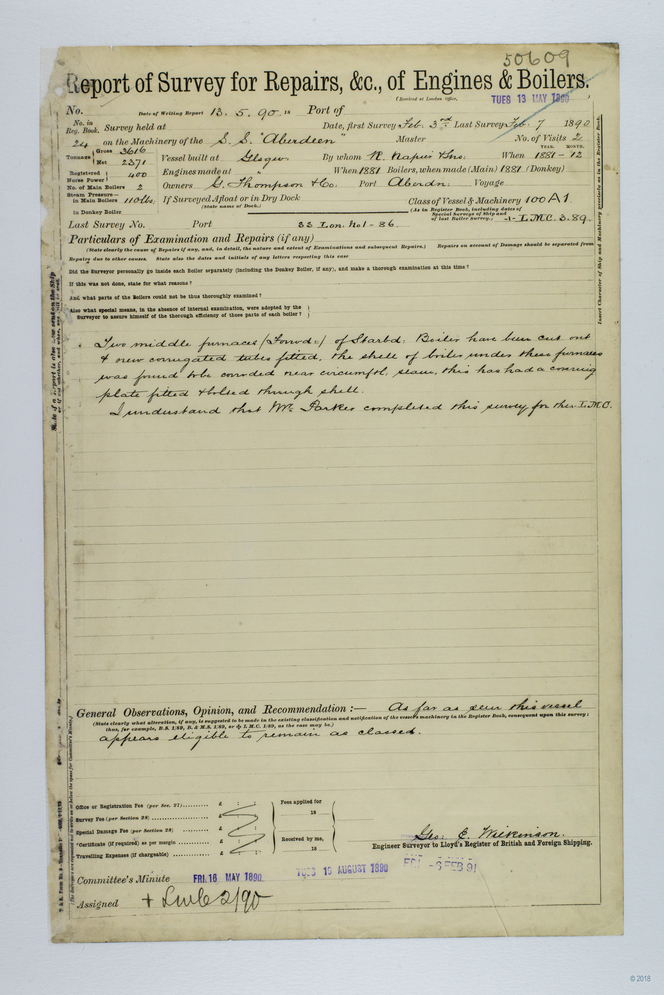 50609
Report of Survey for Repairs, &c., of Engines & Boilers.
(Received at London Office, TUES 13 MAY 1890)
No. Date of Writing Report 13. 5. 90. 18 Port of
No. in Reg. Book. Survey held at Date, first Survey Feb. 3rd Last Survey Feb. 7 1890
24 on the Machinery of the S. S. "Aberdeen" Master No. of Visits 2
Tonnage Gross 3616 Net 2371 Vessel built at Glsgw. By whom R. Napier & Sns. When YEAR. MONTH. 1881-12
Registered Horse Power 400 Engines made at " When 1881 Boilers, when made (Main) 1881 (Donkey)
No. of Main Boilers 2 Owners G. Thompson & Co. Port Aberdn. Voyage
Steam Pressure— in Main Boilers 110 lbs. If Surveyed Afloat or in Dry Dock Class of Vessel & Machinery 100A1.
in Donkey Boiler (State name of Dock.) (As in Register Book, including dates of Special Surveys of Ship and of last Boiler Survey.) L.M.C. 3.89.
Last Survey No. Port SS Lon. No1-86.
Particulars of Examination and Repairs (if any)
(State clearly the cause of Repairs if any, and, in detail, the nature and extent of Examinations and subsequent Repairs.) Repairs on account of Damage should be separated from
Repairs due to other causes. State also the dates and initials of any letters respecting this case
Did the Surveyor personally go inside each Boiler separately (including the Donkey Boiler, if any), and make a thorough examination at this time?
If this was not done, state for what reasons?
And what parts of the Boilers could not be thus thoroughly examined?
Also what special means, in the absence of internal examination, were adopted by the
Surveyor to assure himself of the thorough efficiency of those parts of each boiler?
Two middle furnaces (Forwd:) of Starbd: Boiler have been cut out
& new corrugated tubes fitted, the shell of boiler under these furnaces
was found to be corroded near circumfl. seam, this has had a covering
plate fitted & bolted through shell.
I understand that Mr. Parker completed this survey for the L.M.C.
General Observations, Opinion, and Recommendation :— As far as seen this vessel
(State clearly what alteration, if any, is suggested to be made in the existing classification and notification of the vessel's machinery in the Register Book, consequent upon this survey;
thus, for example, B.S. 1/89, B. & M.S. 1/89, or L.M.C. 1/89, as the case may be.)
appears eligible to remain as classed.
Office or Registration Fee (per Sec. 27) £ : : Fees applied for
Survey Fee (per Section 28) £ : : 18
Special Damage Fee (per Section 28) £ : :
*Certificate (if required) as per margin £ : : Received by me,
Travelling Expenses (if chargeable) £ : : 18
Geo. E. Wilkinson.
Engineer Surveyor to Lloyd's Register of British and Foreign Shipping.
Committee's Minute FRI. 16 MAY 1890. TUES 19 AUGUST 1890 FRI -6 FEB 91
Assigned + LMC 2/90
Insert Character of Ship and Machinery precisely as in the Register Book.
© 2018